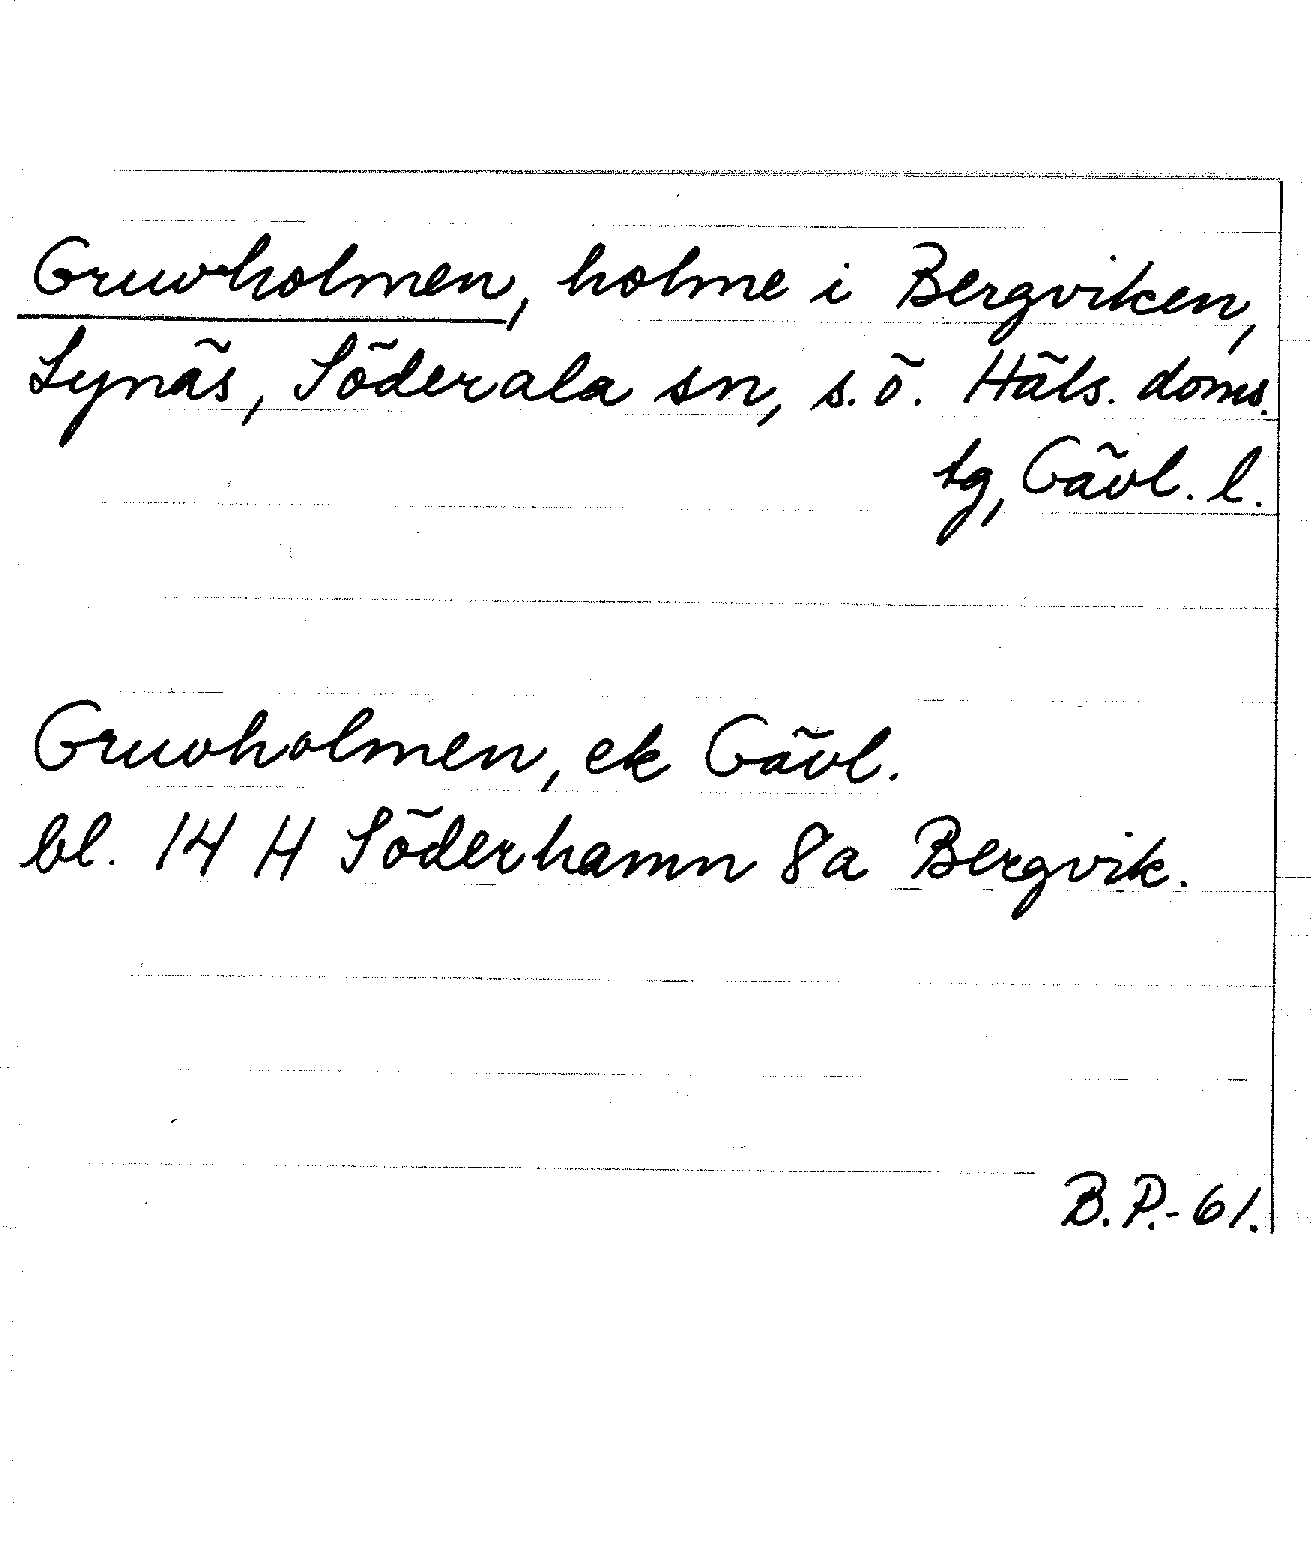 Gruvholmen, holme i Bergviken,
Lynäs, Söderala sn, s.ö. Häls. doms.
tg, Gävl. l.
Gruvholmen, ek Gävl.
bl. 14 H Söderhamn 8a Bergvik.
B.P.-61.